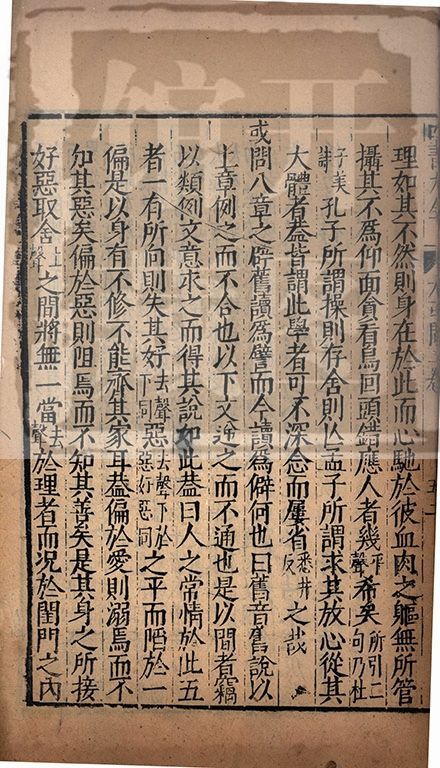 理如其不然則身在於此而心馳於彼血肉之軀無所管
攝其不為仰面貪看鳥回頭錯應人者幾平聲希矣所引二句乃杜
子美詩孔子所謂操則存舍則亾孟子所謂求其放心從其
大體者蓋皆謂此學者可不深念而屢省悉井反之哉
或問八章之辟舊讀為譬而今讀為僻何也曰舊音舊說以
上章例之而不合也以下文逆之而不通也是以間者竊
以類例文意求之而得其說如此蓋曰人之常情於此五
者一有所向則失其好去聲下同惡去聲下於惡好惡同之平而陷於一
偏是以身有不修不能齊其家耳蓋偏於愛則溺焉而不
知其惡矣偏於惡則阻焉而不知其善矣是其身之所接
好惡取舍上聲之間將無一當去聲於理者而况於閨門之內